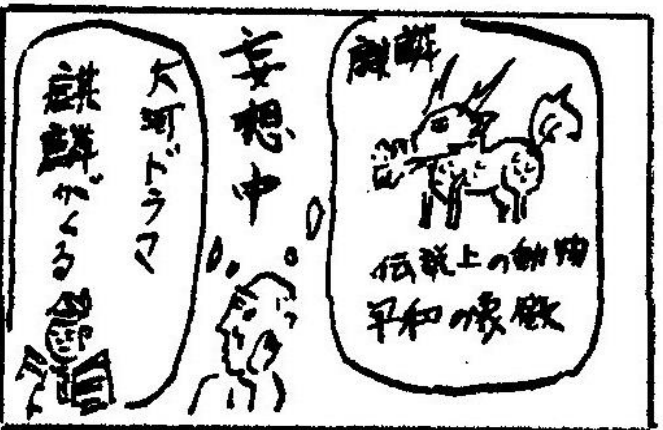 麒麟
伝説上の動物
平和の象徴
妄想中
大河ドラマ
麒麟がくる